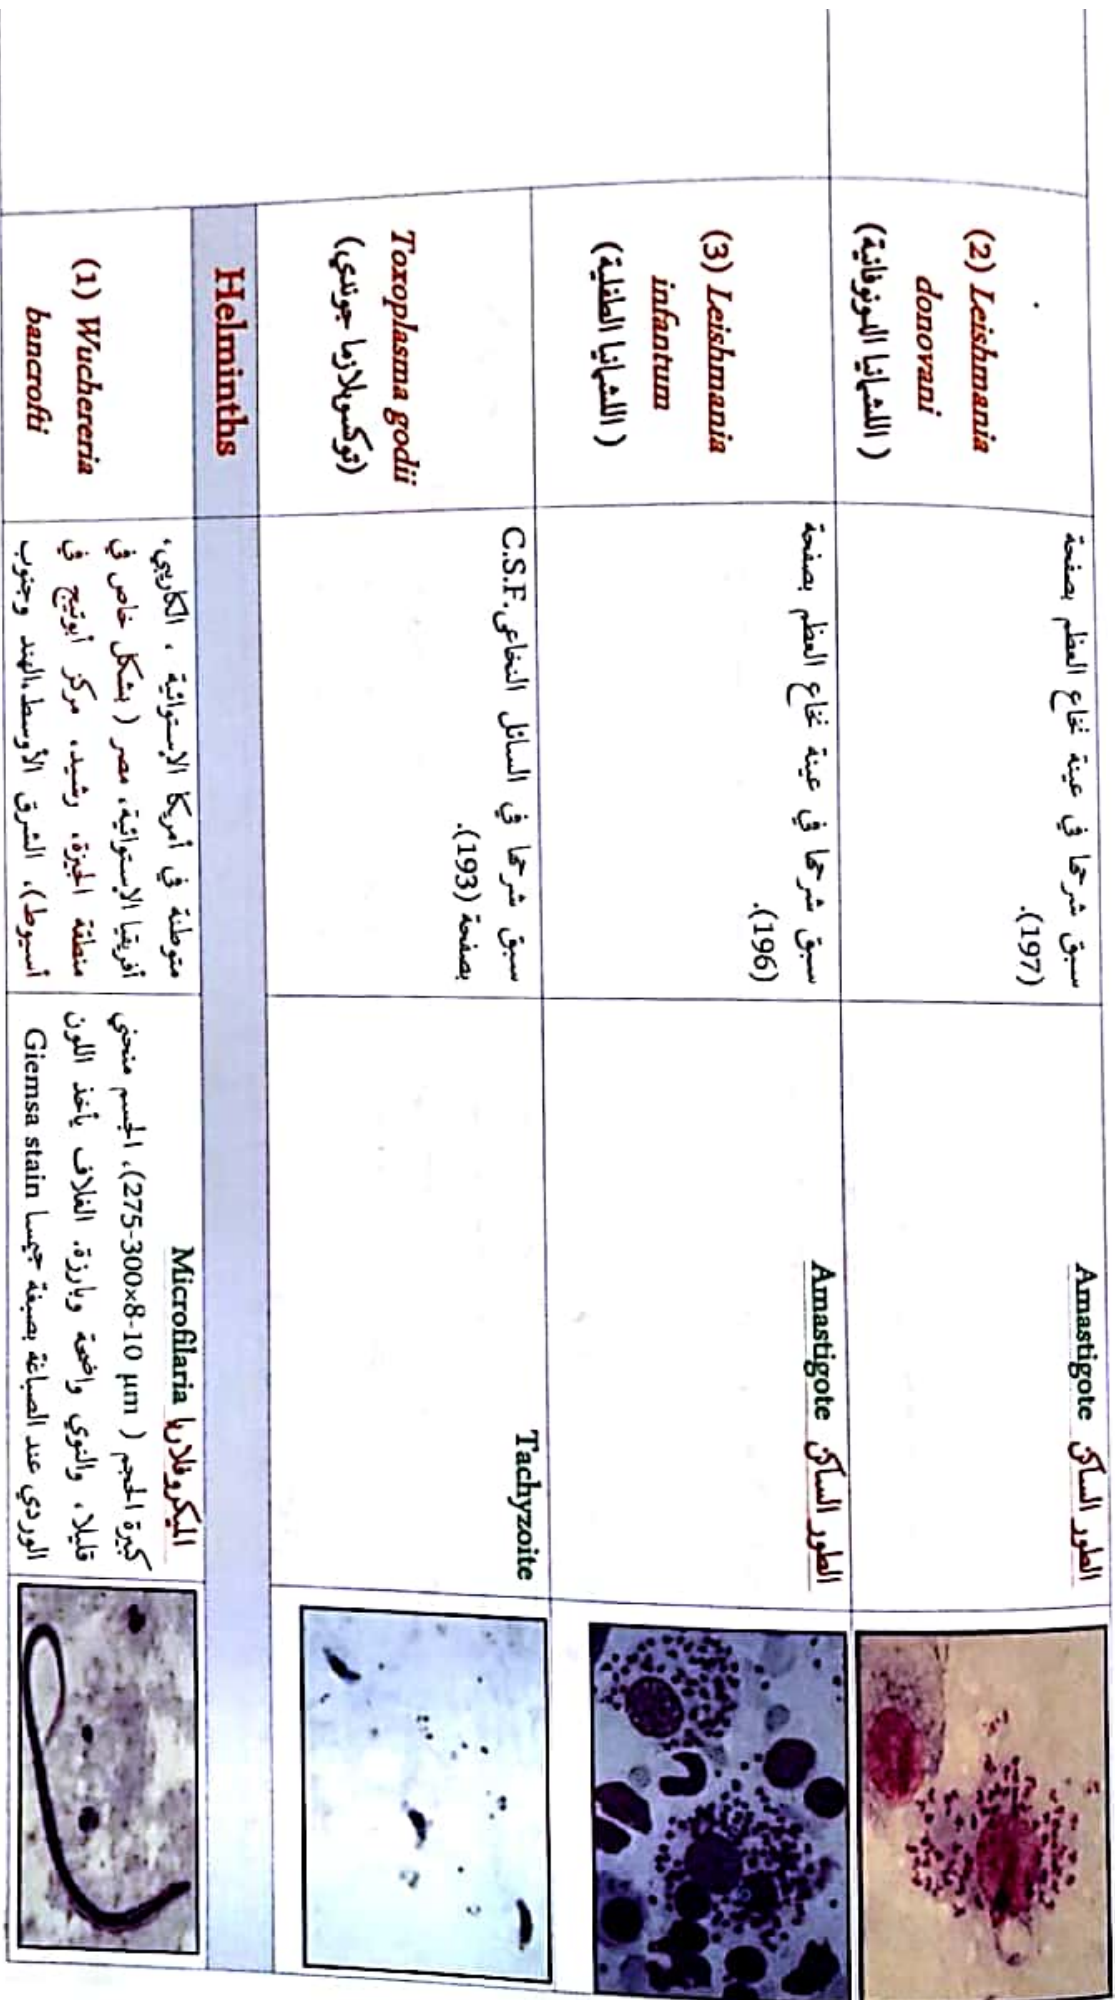 (2) Leishmania
donovani
( اللشمانيا الدونوفانية)
سبق شرحها في عينة نخاع العظم بصفحة
(197).
Amastigote الطور الساكن
(3) Leishmania
infantum
( اللشمانيا الطفلية)
سبق شرحها في عينة نخاع العظم بصفحة
(196).
Amastigote الطور الساكن
Toxoplasma godii
(توكسوبلازما جوندي)
سبق شرحها في السائل النخاعى.C.S.F
بصفحة (193).
Tachyzoite
Helminths
(1) Wuchereria
bancrofti
متوطنة في أمريكا الإستوائية ، الكاريبي،
أفريقيا الإستوائية، مصر ( بشكل خاص في
منطقة الجيزة، رشيد، مركز أبوتيج في
أسيوط)، الشرق الأوسط،الهند وجنوب
الميكروفلاريا Microfilaria
كبيرة الحجم ( 275-300×8-10 µm)، الجسم منحني
قليلا، والنوي واضحة وبارزة، الغلاف يأخذ اللون
الوردي عند الصباغة بصبغة جيمسا Giemsa stain